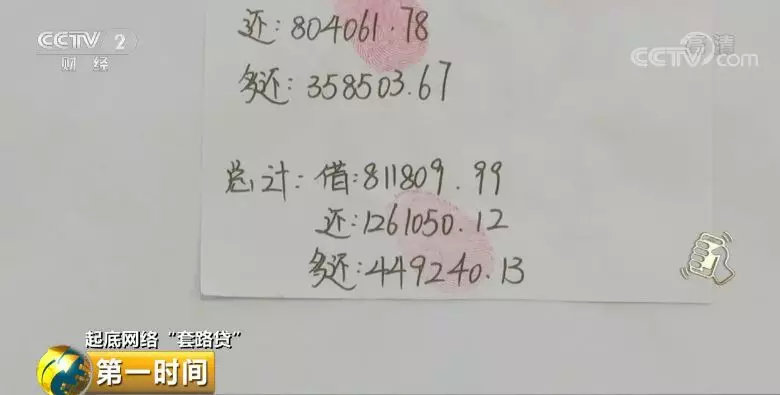 CCTV 2
财经
高清
CCTV.com
还:804061.78
多还:358503.67
总计:借:811809.99
还:1261050.12
多还:449240.13
起底网络“套路贷”
第一时间